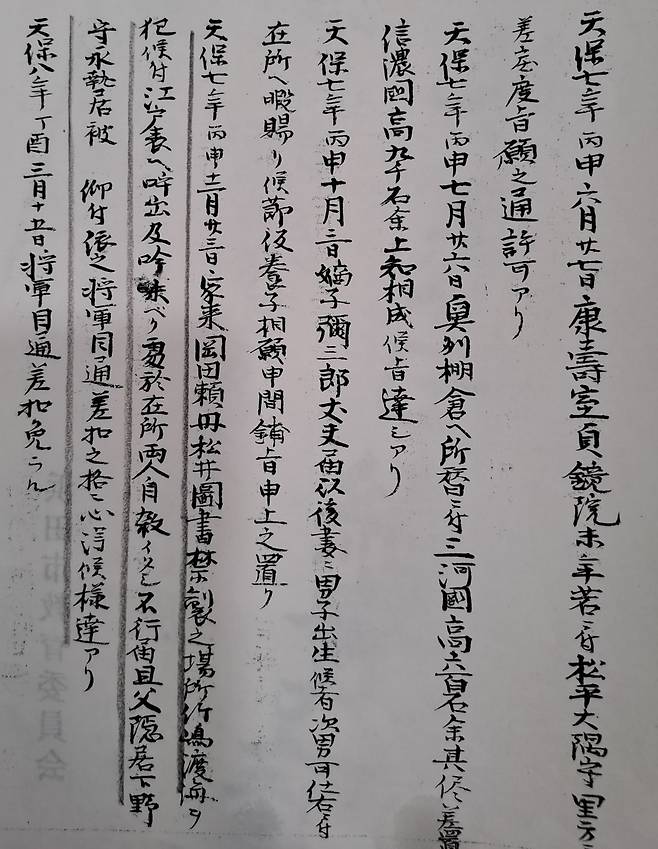 天保七年丙申六月廿七日康壽室貞鏡院未年若ニ付松平大隅守里方
差戻度旨願之通許可アリ
天保七年丙申七月廿六日奥州棚倉ヘ所替ニ付三河國高六百石余其侭差置
信濃國高九千石余上知相成候旨達シアリ
天保七年丙申十月三日嫡子彌三郎丈夫届以後妻ニ男子出生候者次男可仕旨付
在所ヘ暇賜リ候節仮養子相願申間鋪旨申上之置リ
天保七年丙申十二月廿三日家来岡田頼母松井圖書禁制之場所竹嶋渡海ヲ
犯候付江戸表ヘ呼出及吟味ベク処於在所両人自殺イタシ不行届且父隠居下野
守永蟄居被 仰付依之将軍目通差扣之格ニ心得候様達アリ
天保八年丁酉三月十五日将軍目通差扣免ラル
浜田市教育委員会